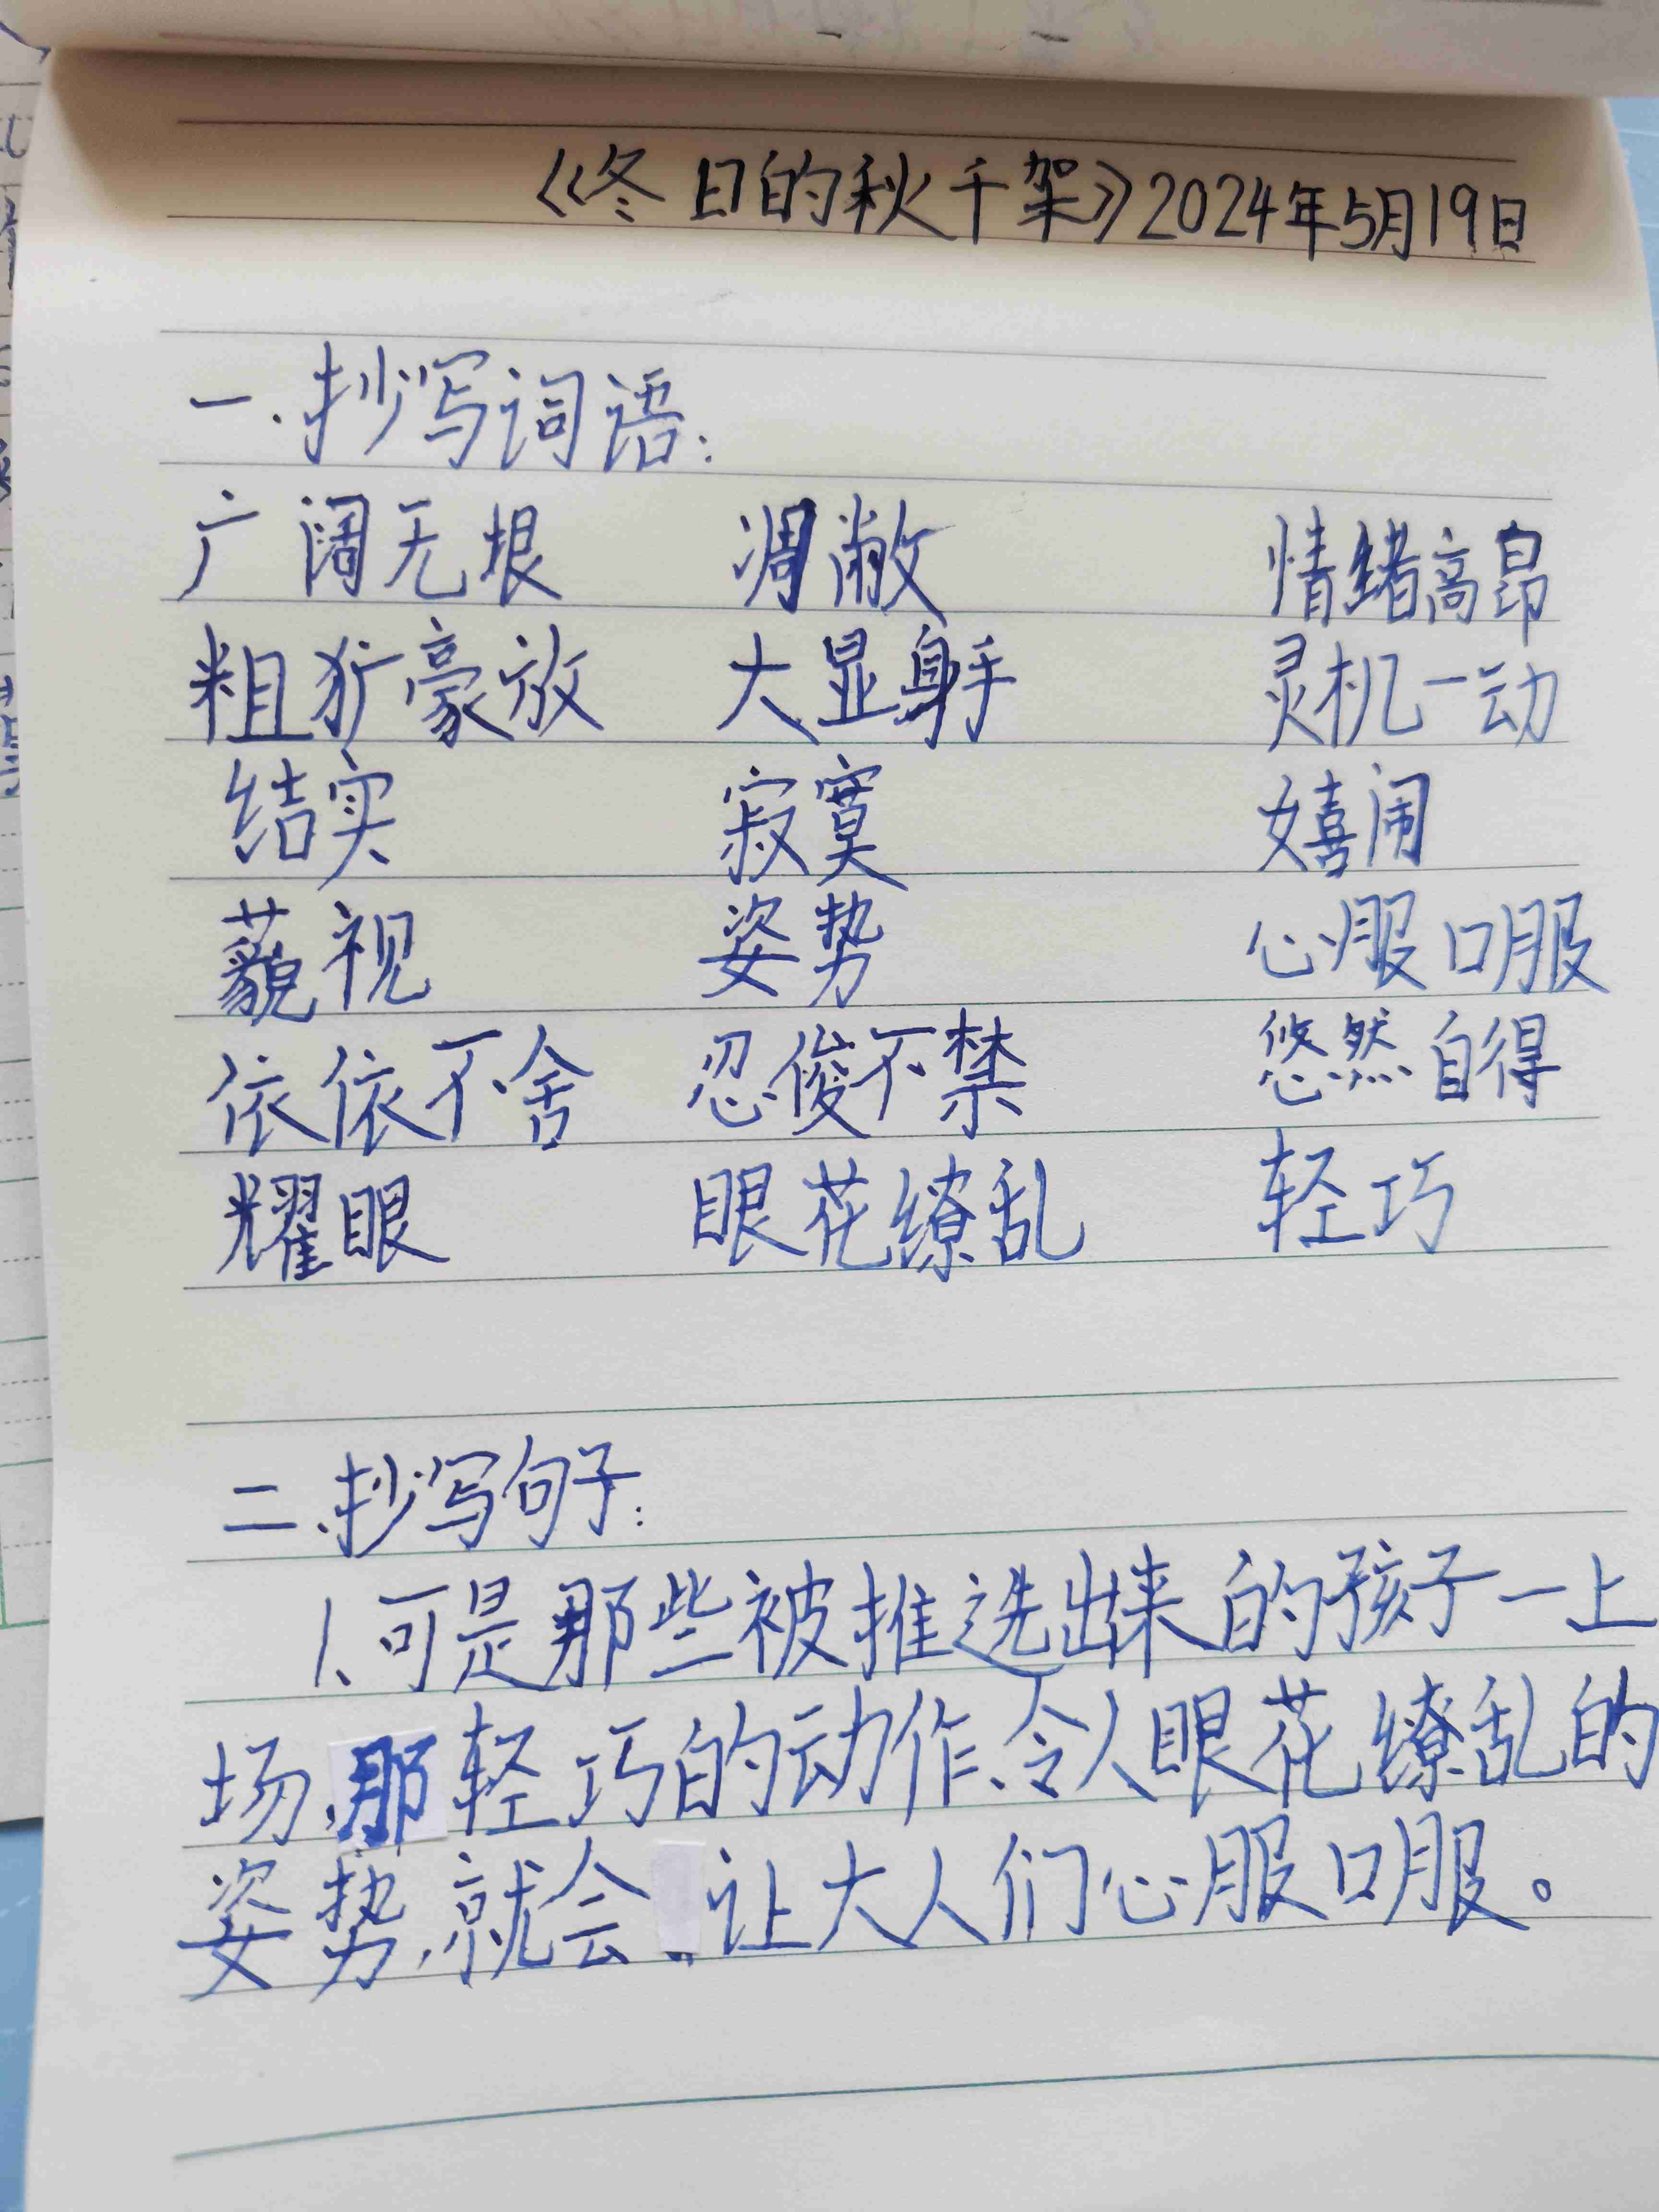 《冬日的秋千架》2024年5月19日
一.抄写词语:
广阔无垠 凋敝 情绪高昂
粗犷豪放 大显身手 灵机一动
结实 寂寞 嬉闹
藐视 姿势 心服口服
依依不舍 忍俊不禁 悠然自得
耀眼 眼花缭乱 轻巧
二.抄写句子:
1、可是那些被推选出来的孩子一上
场,那轻巧的动作、令人眼花缭乱的
姿势,就会让大人们心服口服。